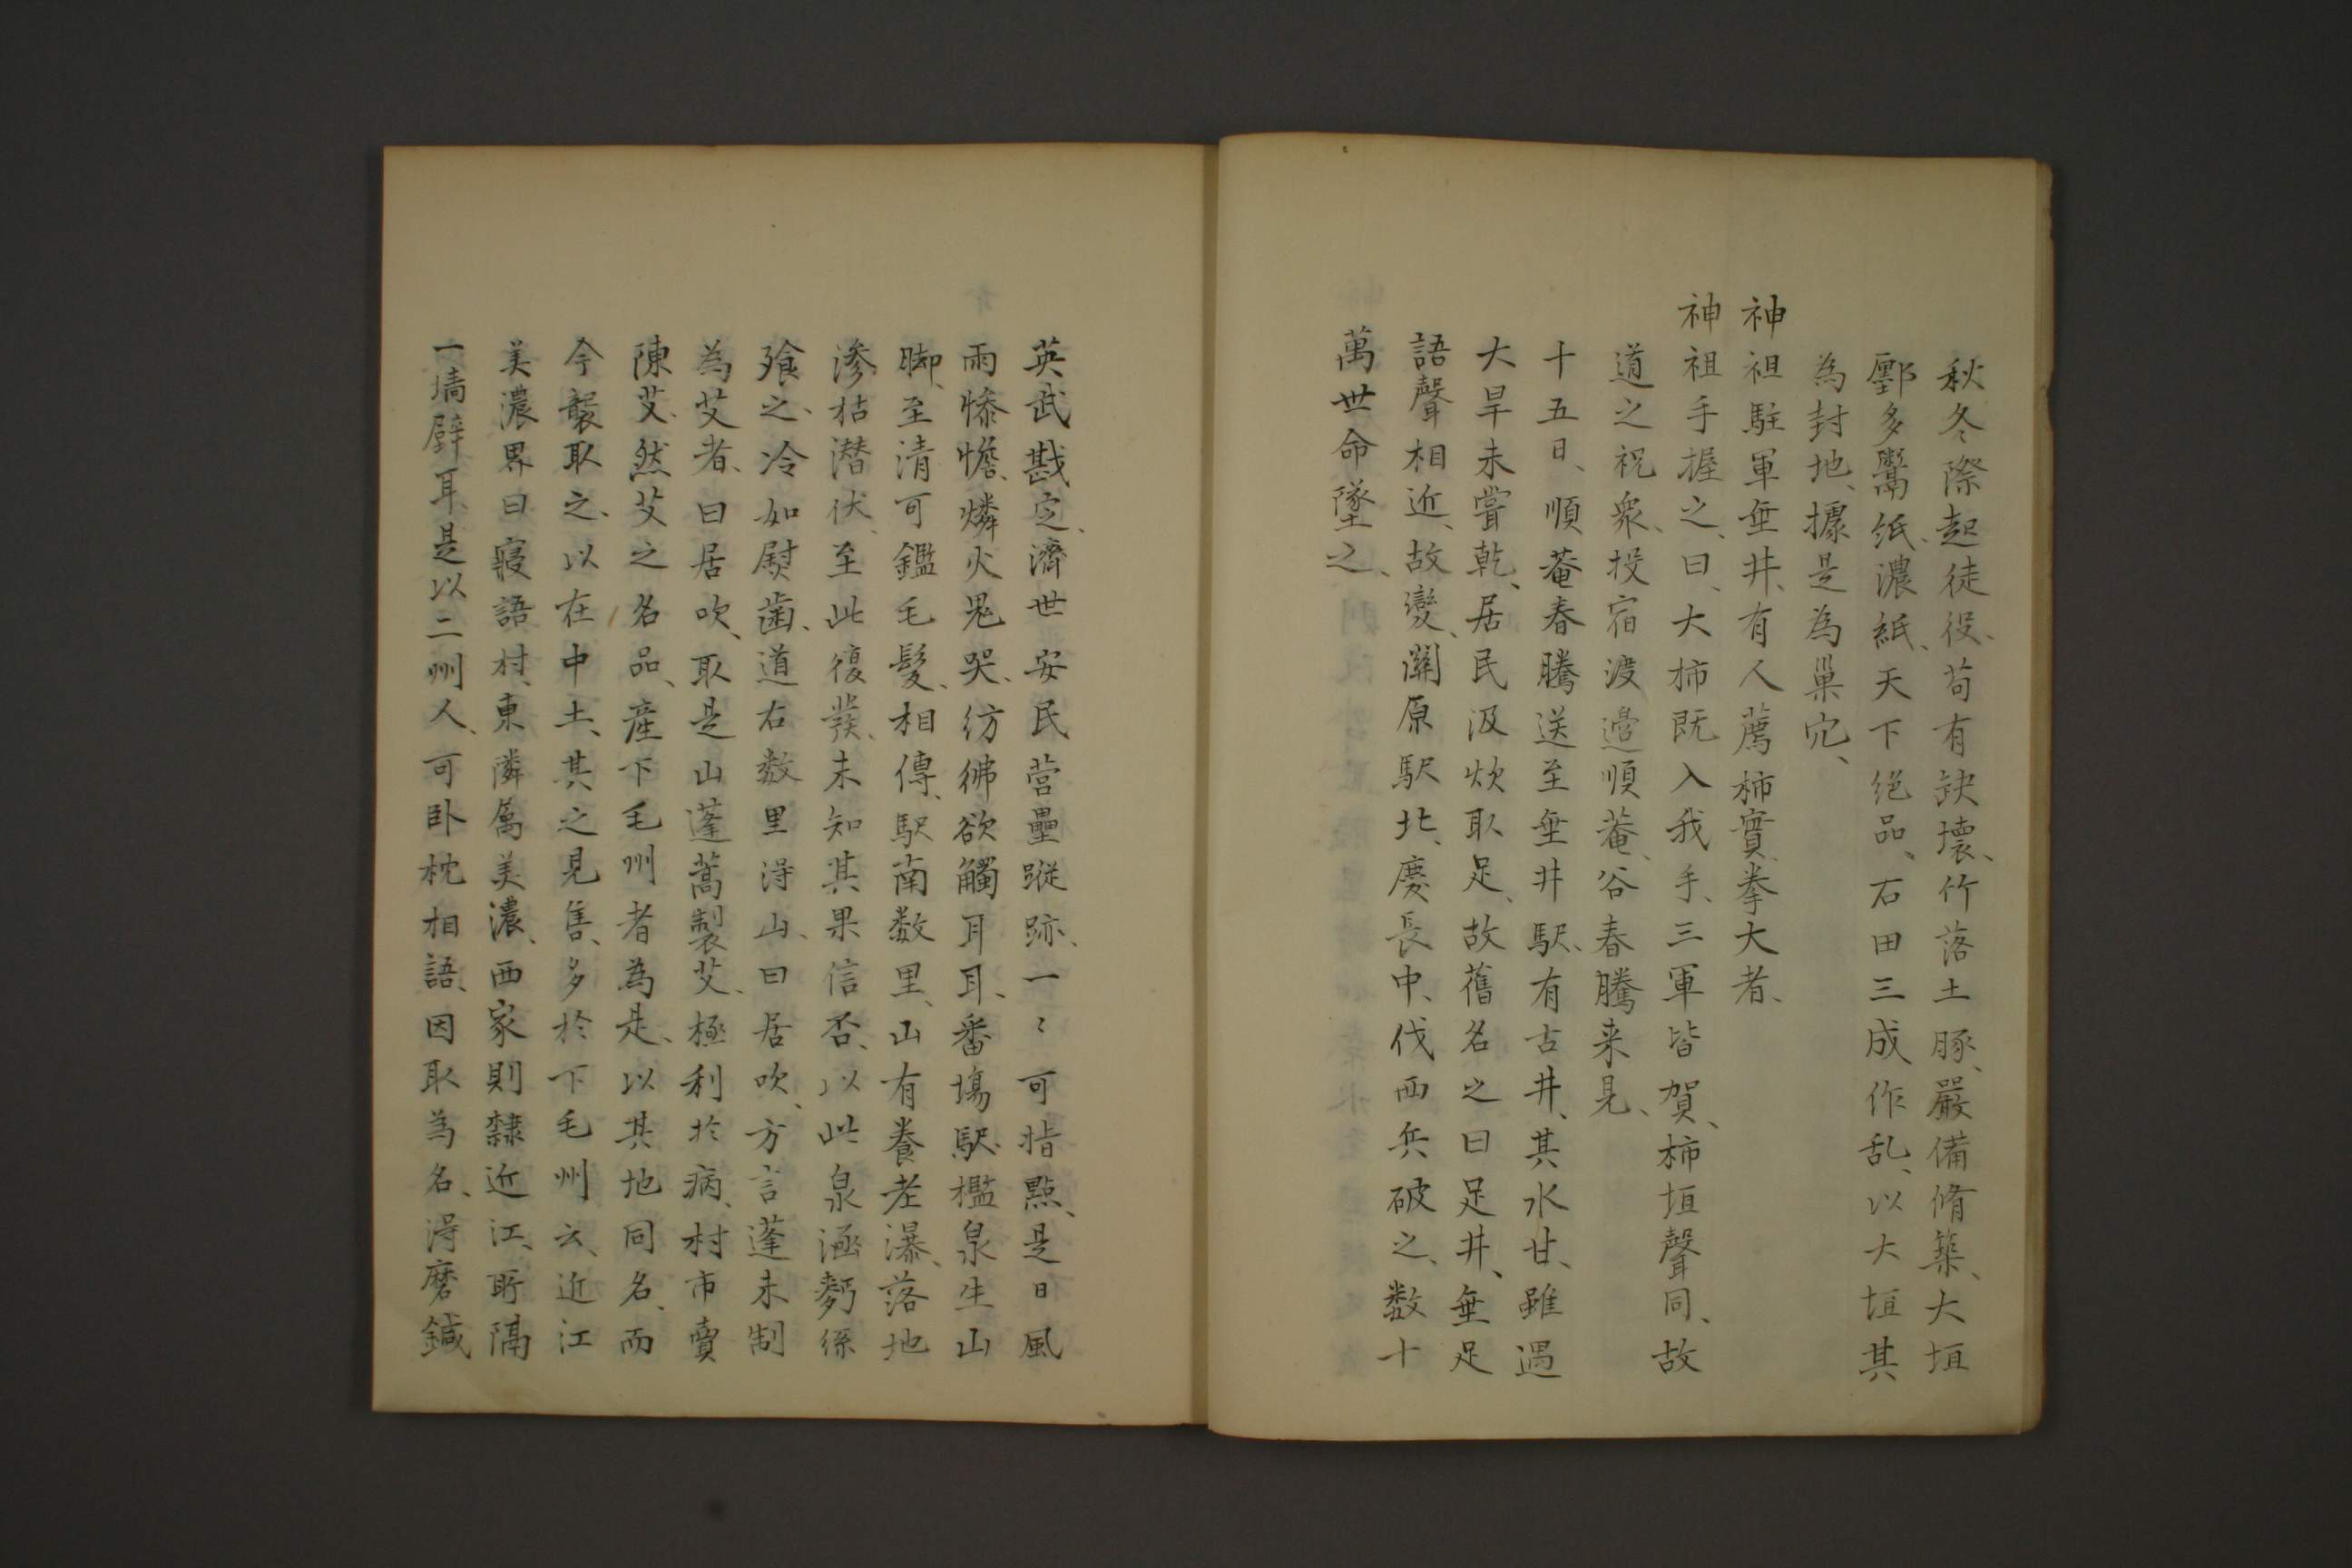 秋冬際起徒役、苟有缺壞、竹落土豚、嚴備脩築、大垣
鄽多鬻紙、濃紙、天下絕品、石田三成作乱、以大垣其
為封地、據是為巢穴、
神祖駐軍垂井、有人薦柿實、拳大者、
神祖手握之、曰、大柿既入我手、三軍皆賀、柿垣聲同、故
道之祝衆、投宿渡邉順菴、谷春騰来見、
十五日、順菴春騰送至垂井駅、有古井、其水甘、雖遇
大旱未嘗乾、居民汲炊取足、故舊名之曰足井、垂足
語聲相近、故變、關原駅北、慶長中、伐西兵破之、数十
萬世命墜之、
英武戡定、濟世安民營壘蹤跡、一〻可指點、是日風
雨慘憺、燐火鬼哭、彷彿欲觸耳耳、番塲駅、檻泉生山
脚、至清可鑑毛髮、相傳、駅南数里、山有養老瀑、落地
滲枯潜伏、至此復發、未知其果信否、以此泉涵麪絲
飱之、冷如慰歯、道右数里得山、曰居吹、方言蓬未制
為艾者、曰居吹、取是山蓬蒿製艾、極利於病、村市賣
陳艾、然艾之名品、産下毛州者為是、以其地同名、而
今襲取之、以在中土、其之見售、多於下毛州云、近江
美濃界曰寢語村、東隣属美濃、西家則隸近江、所隔
一墻壁耳、是以二州人、可卧枕相語、因取為名、得磨鍼